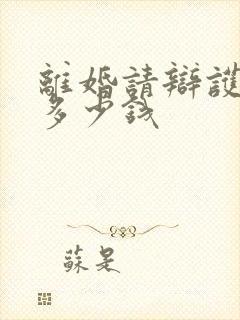 離婚請辯護
多少錢
蘇是